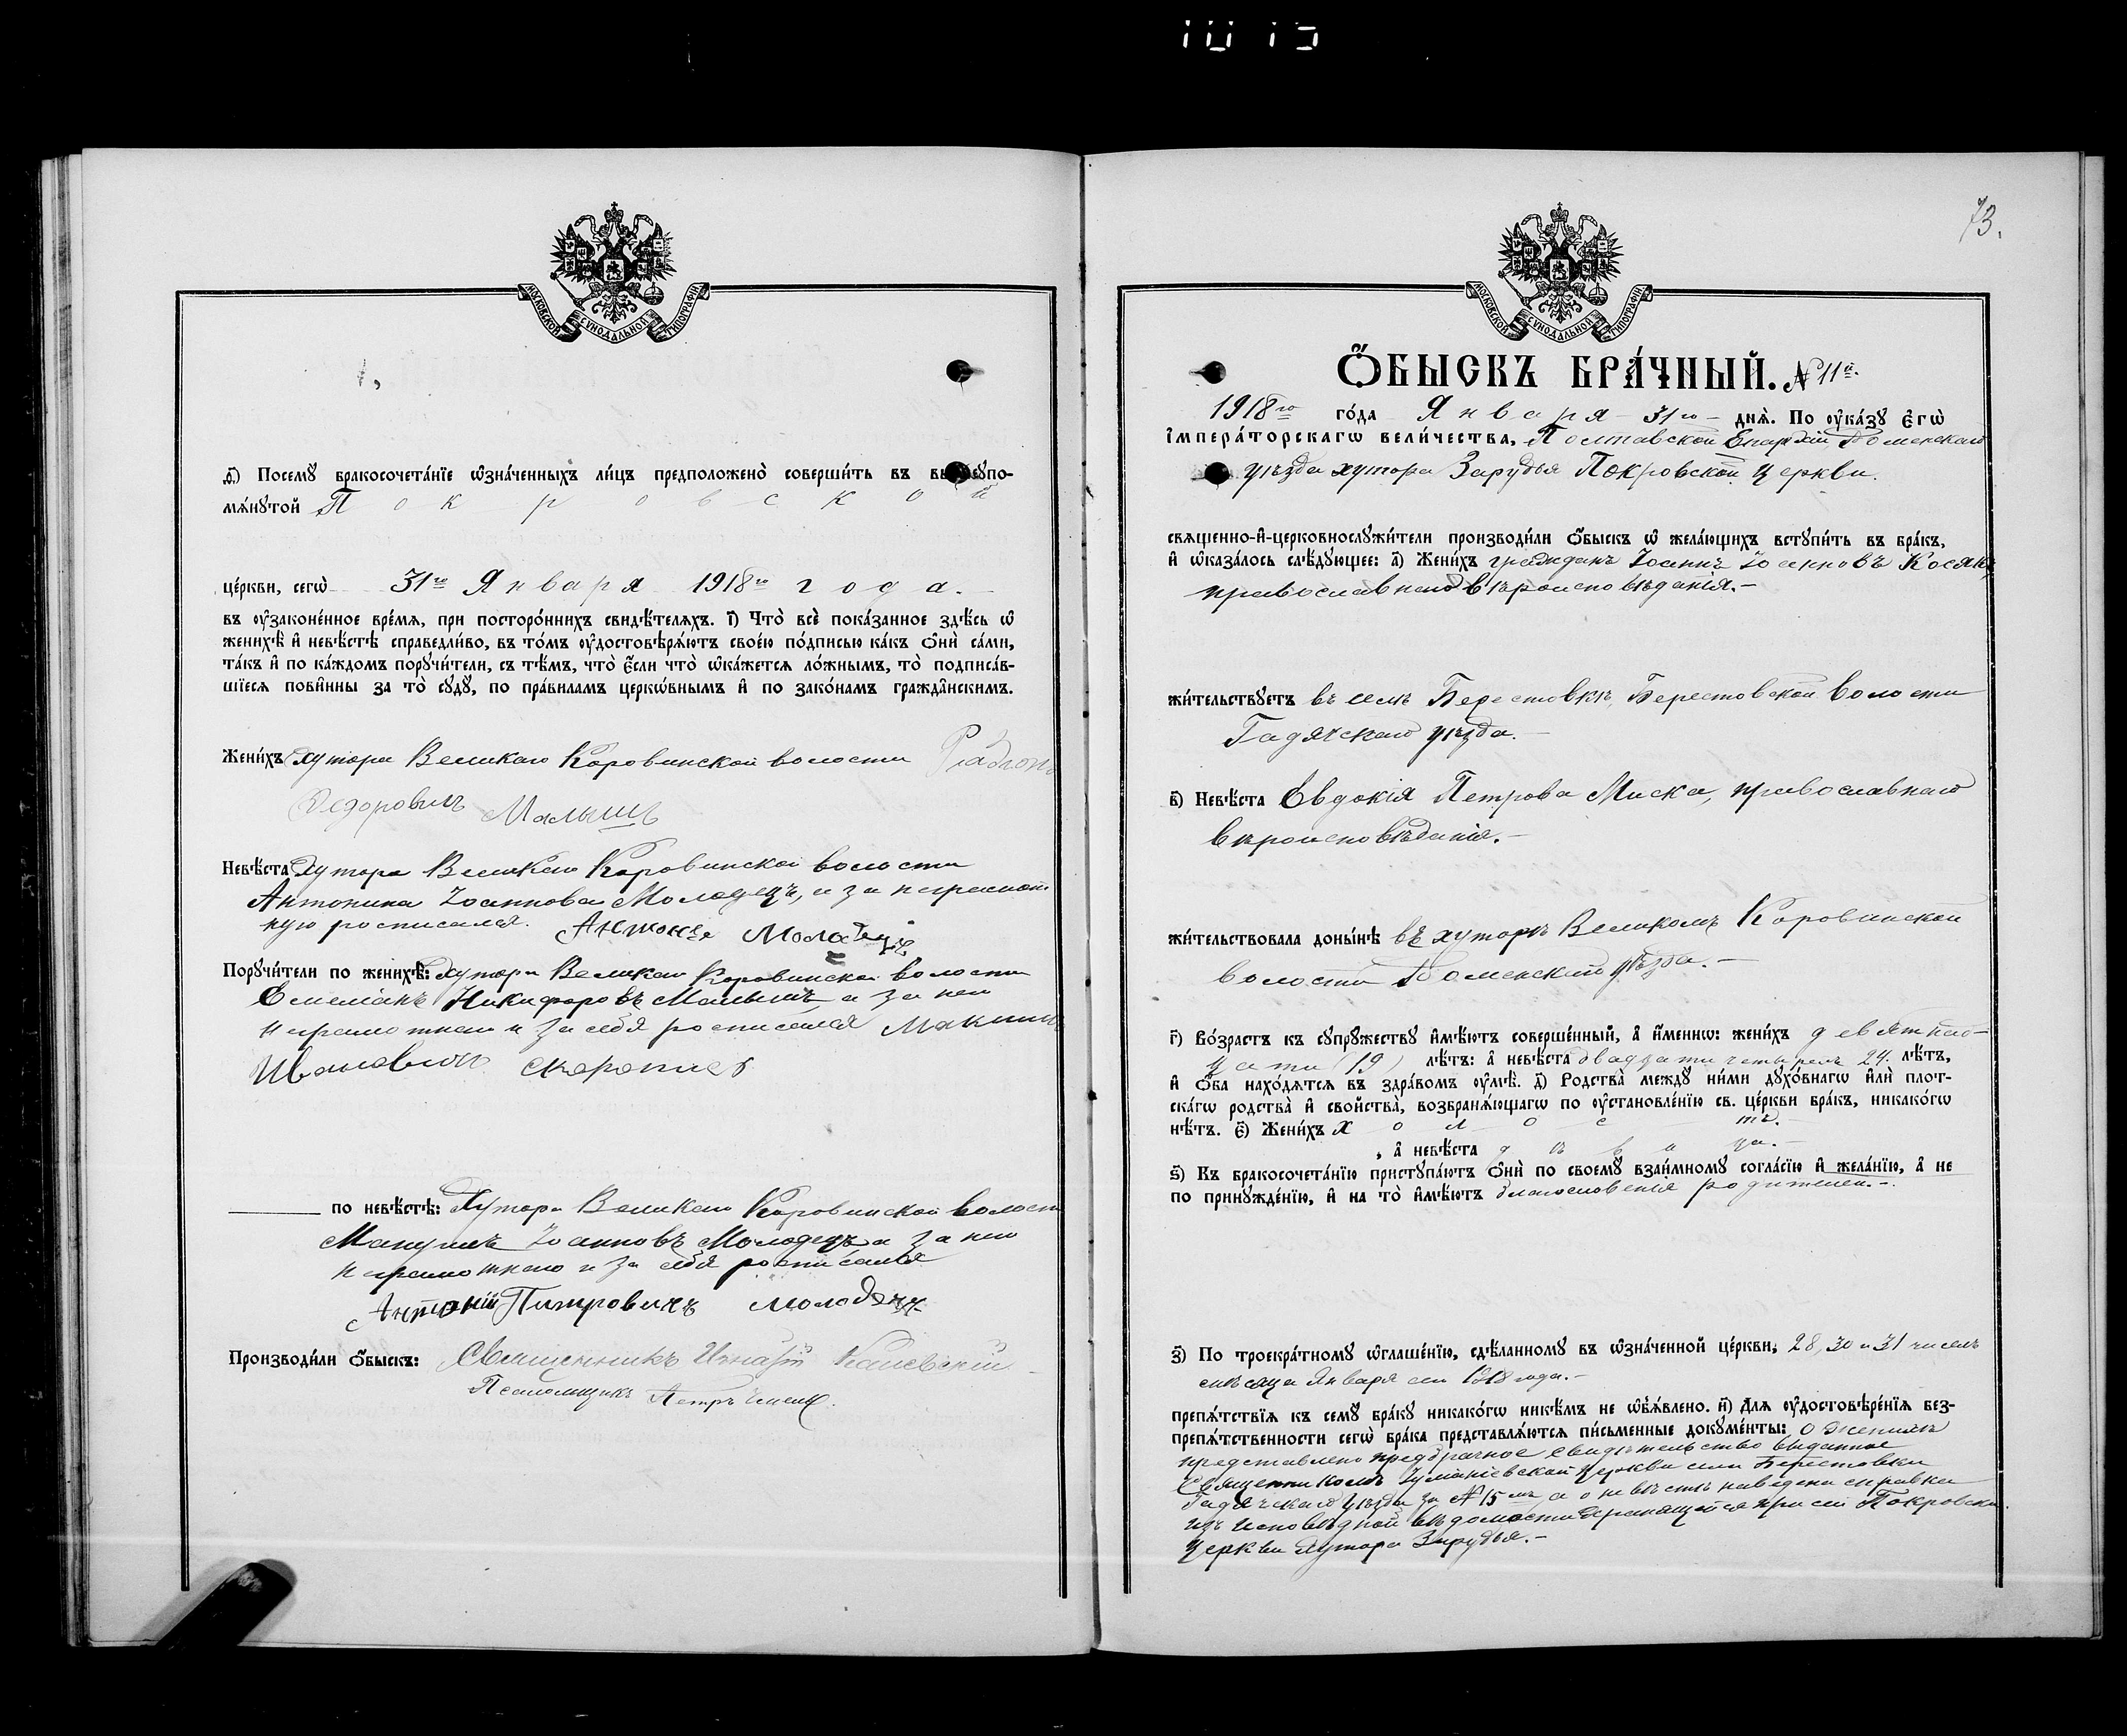 10 15
МОСКОВСКОЙ СѴНОДАЛЬНОЙ ТИПОГРАФІИ
д҃) Посемꙋ бракосочета́нїе ѡ҆зна́ченныхъ ли́цъ предположено̀ соверши́ть въ вы еꙋпо-
мѧ́нꙋтой Покровской
це́ркви, сегѡ̀ 31го Января 1918го года.
въ ᲂу҆зако́ненное вре́мѧ, при посторо́ннихъ свидѣ́телѧхъ. і҃) Что̀ всѐ пока́занное здѣ́сь ѡ҆
женихѣ̀ и҆ невѣ́стѣ справедли́во, въ то́мъ ᲂу҆достовѣрѧ́ютъ свое́ю по́дписью ка́къ ѻ҆нѝ са́ми,
та́къ и҆ по ка́ждомъ порꙋчи́тели, съ тѣ́мъ, что̀ є҆́сли что̀ ѡ҆ка́жетсѧ ло́жнымъ, то̀ подписа́в-
шїесѧ пови́нны за то̀ сꙋдꙋ̀, по пра́виламъ церкѡ́внымъ и҆ по зако́намъ гражда́нскимъ.
Жени́хъ хутора Великаго Коровинской волости
Федоровичъ Малышъ
Невѣ́ста Хутора Великаго Коровинской волости
Антонина Іоаннова Молодецъ, а за неграмот
ную росписался. Молодец
Порꙋчи́тели по женихѣ̀: Хутора Великаго Коровинской волости
Никифоровъ Малышъ, а за него
неграмотнаго и за себя росписался
Ивановичъ
по невѣ́стѣ: Хутора Великаго Коровинской волости
Іоанновъ Молодецъ а за него
неграмотнаго и за себя росписался
Антоній Питровичъ Молодец
Производи́ли ѻ҆́быскъ: Священникъ Игнатій
Псаломщикъ Петръ
73.
МОСКОВСКОЙ СѴНОДАЛЬНОЙ ТИПОГРАФІИ
Ѻ҆́БЫСКЪ БРА́ЧНЫЙ. № 11й.
1918го го́да Января 31го днѧ̀. По ᲂу҆ка́зꙋ є҆гѡ̀
і҆мпера́торскагѡ вели́чества, Полтавской Епархіи, Роменскаго
уѣзда хутора Зарудья Покровской церкви.
свѧще́нно-и҆-церковнослꙋжи́тели производи́ли ѻ҆́быскъ ѡ҆ жела́ющихъ встꙋпи́ть въ бра́къ,
и҆ ѡ҆каза́лось слѣ́дꙋющее: а҃) Жени́хъ гражданъ Іоаннъ Іоанновъ Косякъ
православнаго вѣроисповѣданія.–
жи́тельствꙋетъ въ селѣ Берестовкѣ, Берестовской волости
Гадячскаго уѣзда.–
в҃) Невѣ́ста Евдокія Петрова Миска, православнаго
вѣроисповѣданія.–
жи́тельствовала доны́нѣ въ хуторѣ Великомъ Коровинской
волости Роменскаго уѣзда.–
г҃) Во́зрастъ къ сꙋпрꙋ́жествꙋ и҆мѣ́ютъ соверше́нный, а҆ и҆́меннѡ: жени́хъ девятнад-
цати (19) лѣ́тъ: а҆ невѣ́ста двадцати четырехъ 24. лѣ́тъ,
и҆ ѻ҆́ба нахо́дѧтсѧ въ здра́вомъ ᲂу҆мѣ̀. д҃) Родства̀ междꙋ ни́ми дꙋхо́внагѡ и҆лѝ плот-
ска́гѡ родства̀ и҆ сво́йства, возбранѧ́ющагѡ по ᲂу҆становле́нїю св. це́ркви бра́къ, никако́гѡ
нѣ́тъ. є҃) Жени́хъ холостъ.–
, а҆ невѣ́ста дѣвица.–
ѕ҃) Къ бракосочета́нїю пристꙋпа́ютъ ѻ҆нѝ по своемꙋ̀ взаи́мномꙋ согла́сїю и҆ жела́нїю, а҆ не
по принꙋжде́нїю, и҆ на то̀ и҆мѣ́ютъ благословенія родителей.–
з҃) По троекра́тномꙋ ѡ҆глаше́нїю, сдѣ́ланномꙋ въ ѡ҆зна́ченной це́ркви, 28, 30 и 31 чиселъ
мѣсяца Января сего 1918 года.–
препѧ́тствїѧ къ семꙋ̀ бра́кꙋ никако́гѡ никѣ́мъ не ѡ҆б̾ѧ́влено. и҃) Длѧ ᲂу҆достовѣре́нїѧ без-
препѧ́тственности сегѡ̀ бра́ка представлѧ́ютсѧ пи́сьменные докꙋме́нты: о женихѣ
представлено предбрачное свидѣтельство выданное
Священникомъ церкви села Берестовки
Гадячскаго уѣзда за №15мъ, а о невѣстѣ наведены справки
изъ исповѣдной вѣдомости хранящейся при сей Покровской
церкви хутора Зарудья.–